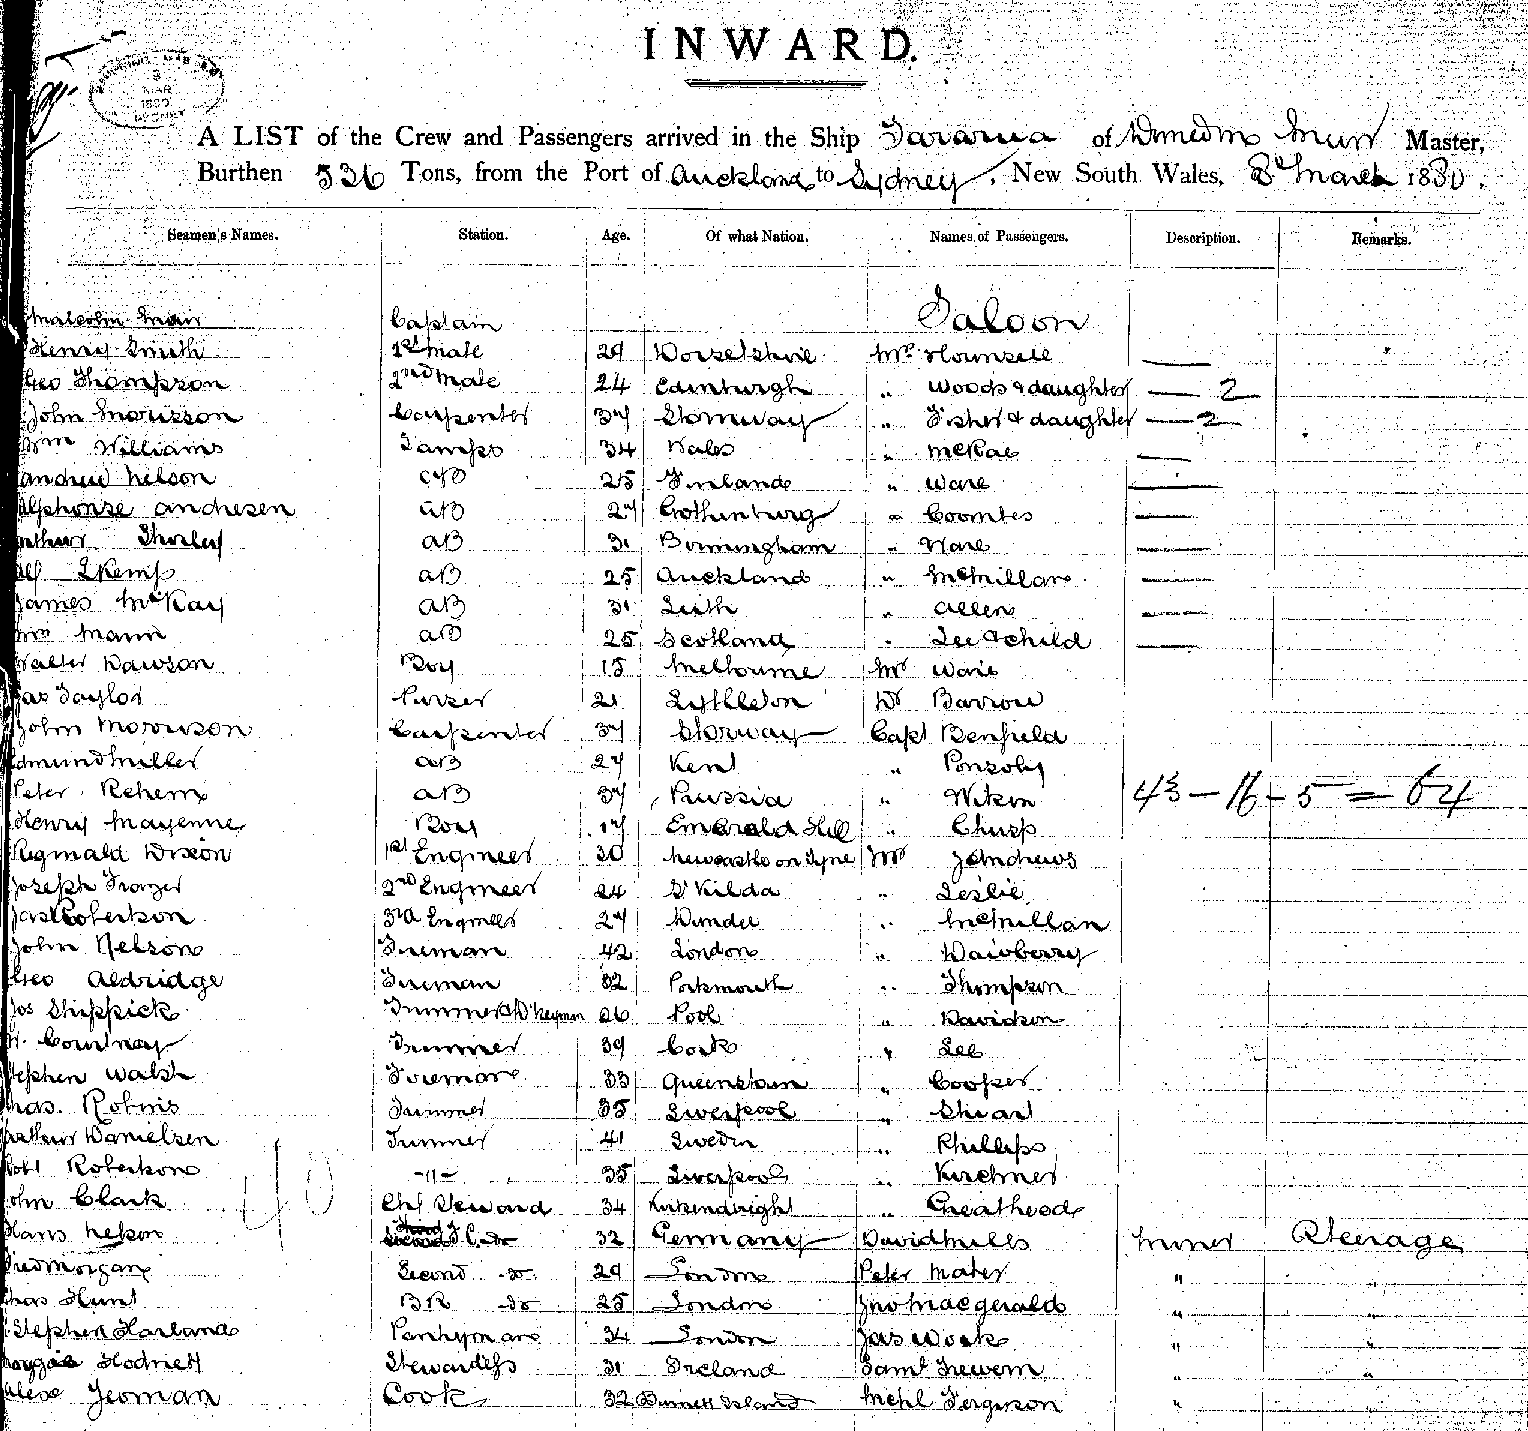 INWARD.
3
MAR
1880
A LIST of the Crew and Passengers arrived in the Ship Tararua of Dunedin Muir Master,
Burthen 536 Tons, from the Port of Auckland to Sydney, New South Wales, 8th March 1880.
Seamen's Names. Station. Age. Of what Nation. Names of Passengers. Description. Remarks.
Malcolm Muir Captain Saloon
Henry Smith 1st Mate 29 Dorsetshire Mrs Hounsell —
Geo Thompson 2nd Mate 24 Edinburgh " Woods & daughter — 2
John Morisson Carpenter 37 Stornway " Fisher & daughter — 2
Wm Williams Lamps 34 Wales " McRae —
Andrew Nelson AB 25 Finland " Ware —
Alphonse Andresen AB 27 Gothenburg " Coombes —
Arthur AB 31 Birmingham " Ware —
Skemp AB 25 Auckland " McMillan —
James McKay AB 31 Leith " Allen —
Wm Mann AB 25 Scotland " Lee & child —
Walter Dawson Boy 15 Melbourne Mr Ware
Jas Taylor Purser 21 Lyttleton Dr Barrow
John Morrison Carpenter 37 Storway Capt Benfield
Edmund Miller AB 27 Kent " Ponsoby
Peter Rehem AB 37 Prussia " 43 — 16 — 5 = 64
Henry Mayenne Boy 17 Emerald Hill "
Reginald Dixon 1st Engineer 30 Newcastle on Tyne Mr Andrews
Joseph Frazer 2nd Engineer 24 St Kilda " Leslie
Jas Robertson 3rd Engineer 27 Dundee " McMillan
John Nelson Fireman 42 London "
Geo Aldridge Fireman 32 Portsmouth " Thompson
Jos Shippick Trimmer & D'keyman 26 Pool " Davidson
Courtnay Trimmer 39 Cork " Lee
Stephen Walsh Foreman 33 Queenstown " Cooper
Chas. Robins Trimmer 35 Liverpool " Stuart
Arthur Danielsen Trimmer 41 Sweden " Phillips
Robt Robertson -"- 35 Liverpool " Kirchner
John Clark Chf Steward 34 Kirkendright " Greathead
40
Hans Nelson F.C. do 32 Germany David Mills Miner Steerage
Fred Morgan Second do 29 London Peter Mater " "
Chas Hunt BR do 25 London Jno Macgerald " "
Stephen Harland Pantryman 34 London Jas Work " "
Hodnett Stewardess 31 Ireland Saml Trewern " "
Alex Yeoman Cook 32 Burnett Island Mchl Ferguson " "